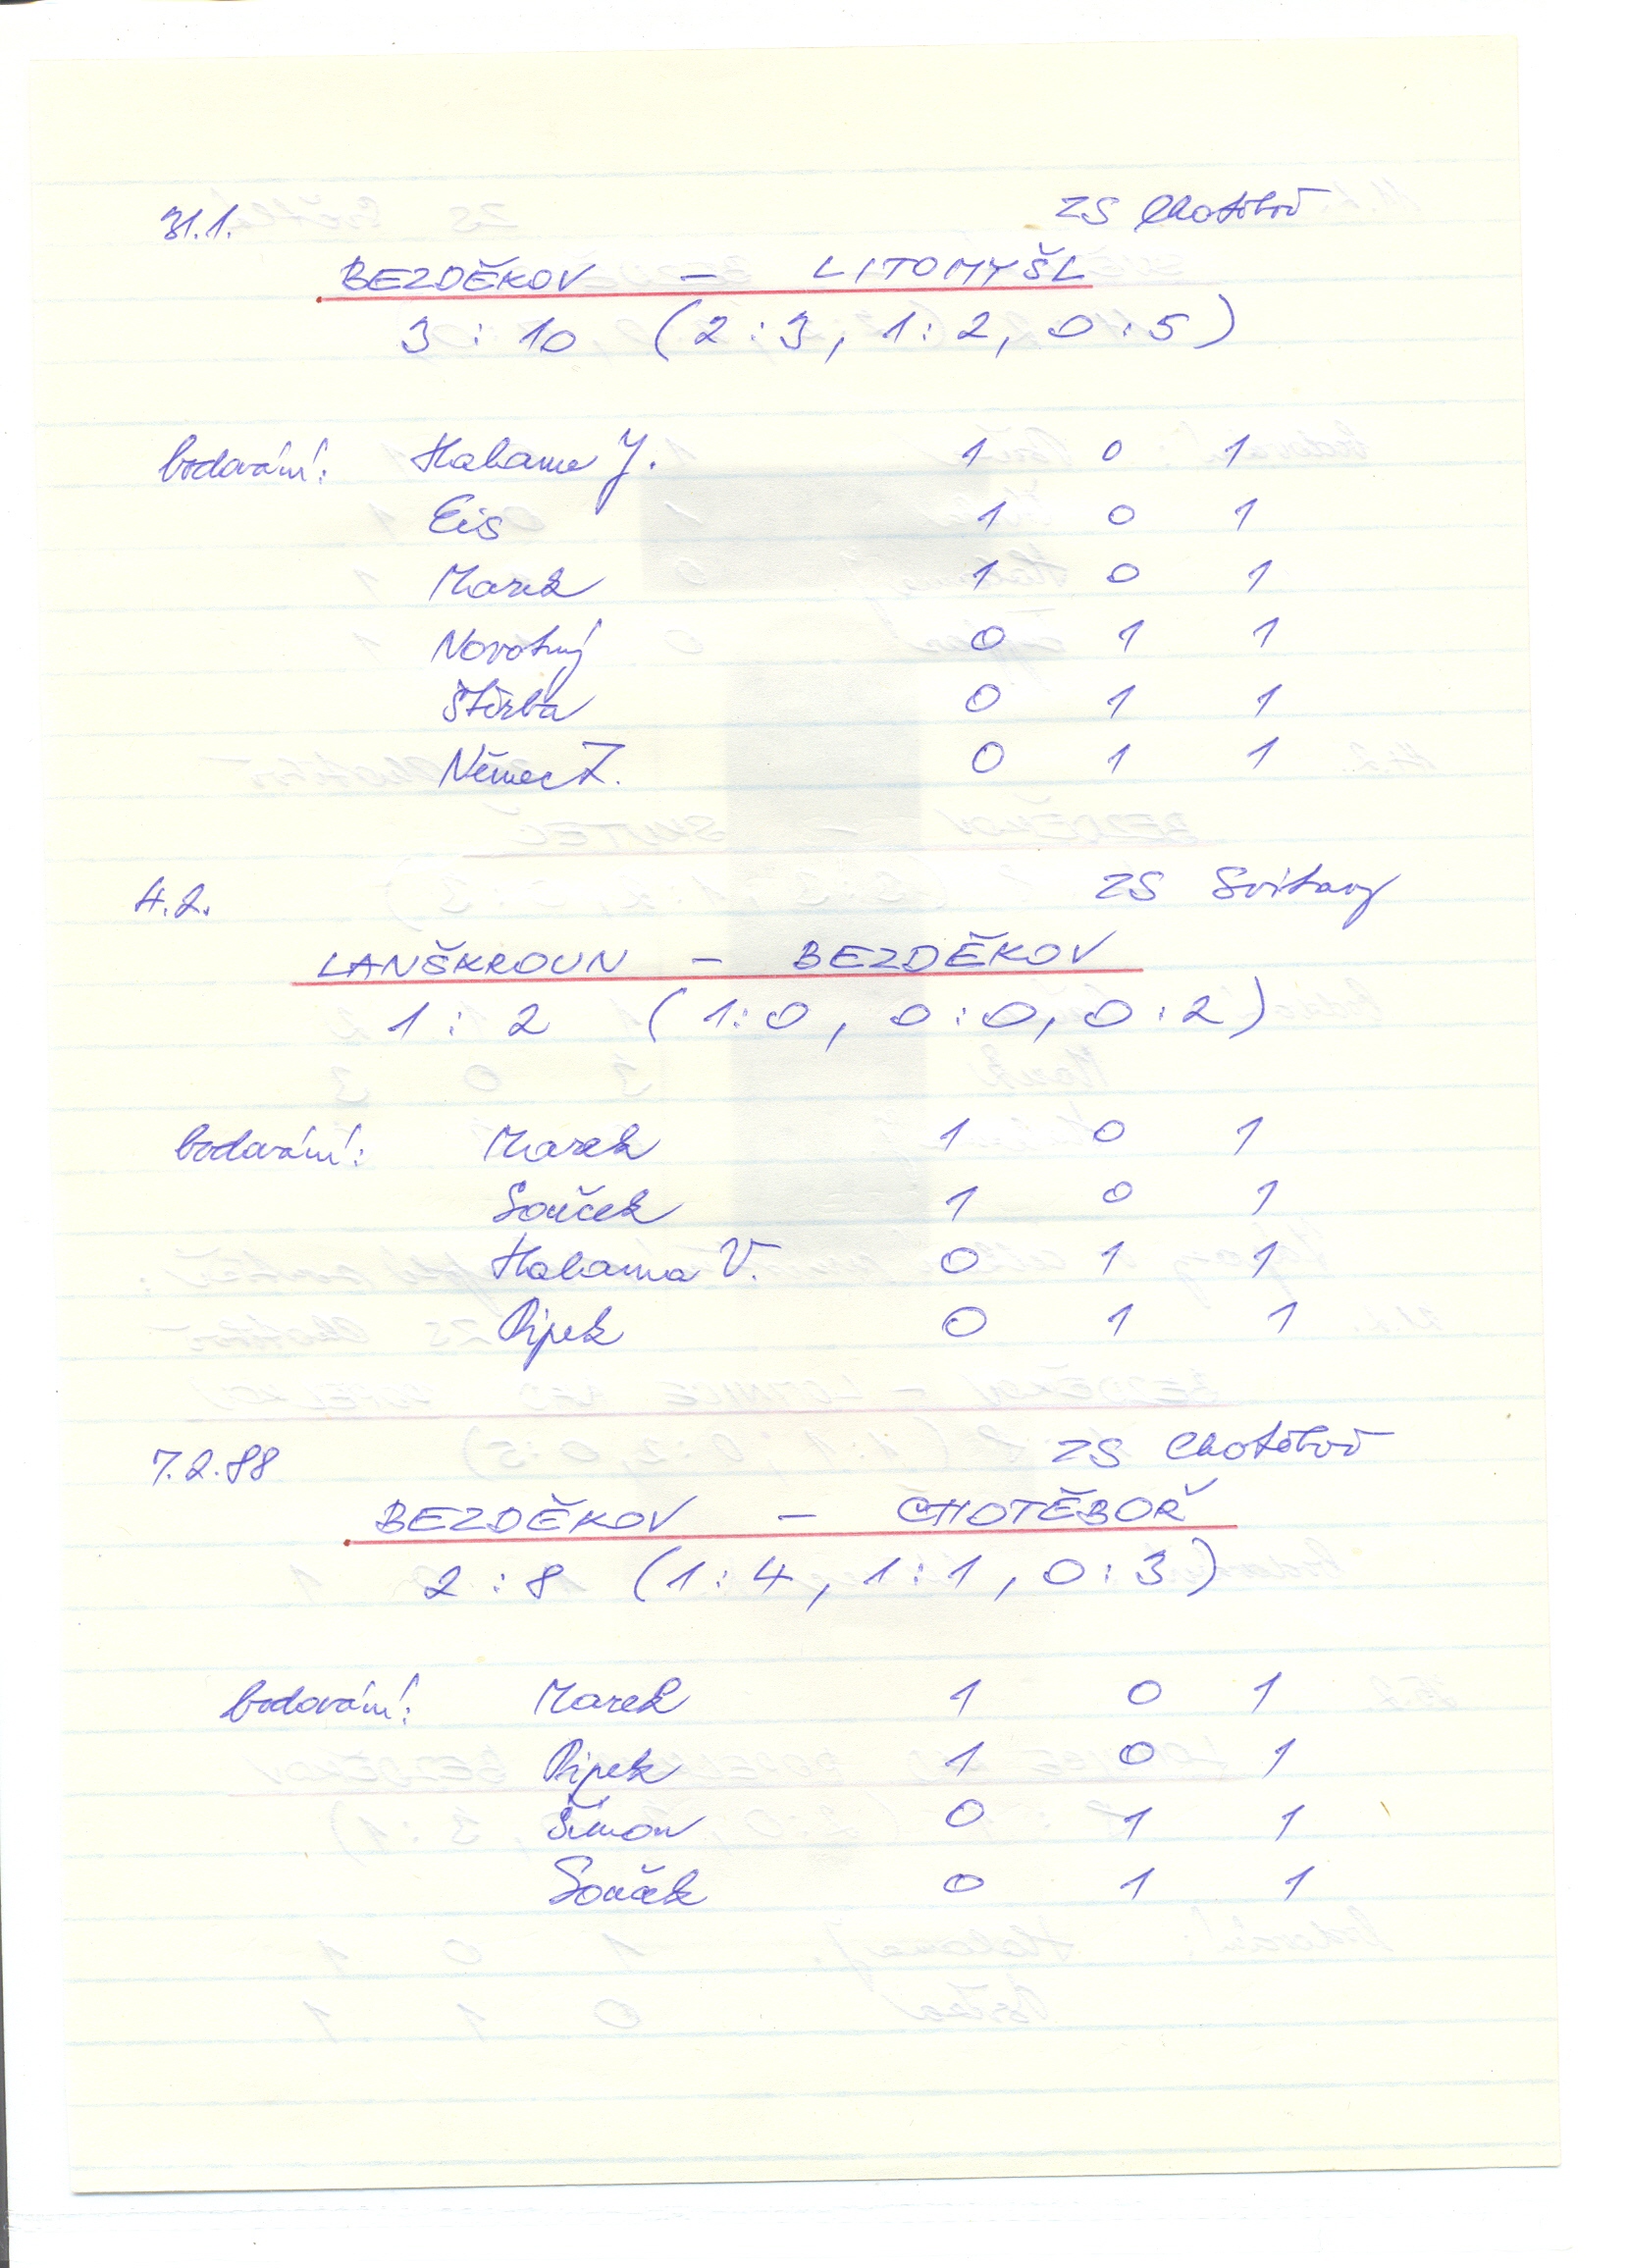 31.1. ZS Chotěboř
BEZDĚKOV – LITOMYŠL
3 : 10 (2:3, 1:2, 0:5)
bodování: Halama J. 1 0 1
Eis 1 0 1
Marek 1 0 1
Novotný 0 1 1
Štěrba 0 1 1
Němec Z. 0 1 1
4.2. ZS Svitavy
LANŠKROUN – BEZDĚKOV
1 : 2 (1:0, 0:0, 0:2)
bodování: Marek 1 0 1
Souček 1 0 1
Halama V. 0 1 1
Pipek 0 1 1
7.2.88 ZS Chotěboř
BEZDĚKOV – CHOTĚBOŘ
2 : 8 (1:4, 1:1, 0:3)
bodování: Marek 1 0 1
Pipek 1 0 1
Šimon 0 1 1
Souček 0 1 1